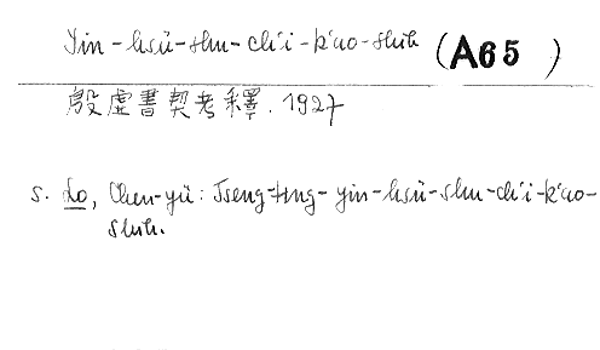 Yin-hsü-shu-ch'i-k'ao-shih (A65)
殷虛書契考釋. 1927
s. Lo, Chen-yü: Tseng-ting-yin-hsü-shu-ch'i-k'ao-
shih.